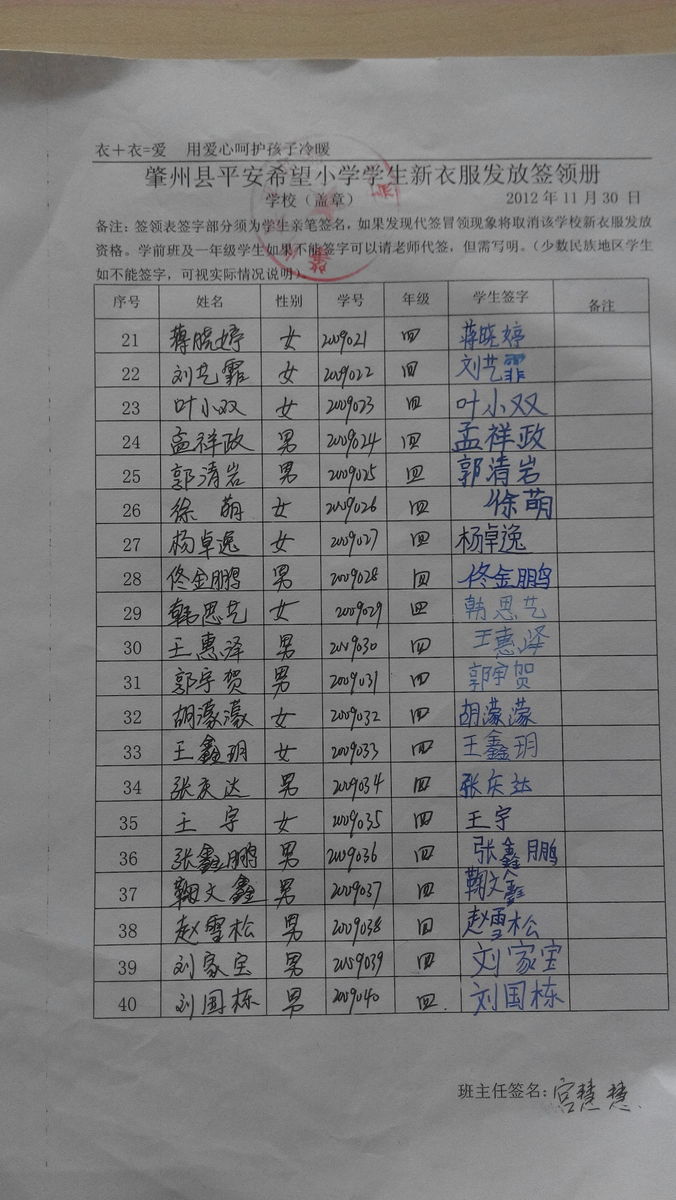 衣＋衣=爱 用爱心呵护孩子冷暖
肇州县平安希望小学学生新衣服发放签领册
学校（盖章） 2012 年 11 月 30 日
备注：签领表签字部分须为学生亲笔签名，如果发现代签冒领现象将取消该学校新衣服发放
资格。学前班及一年级学生如果不能签字可以请老师代签，但需写明。（少数民族地区学生
如不能签字，可视实际情况说明）。
序号 姓名 性别 学号 年级 学生签字 备注
21 蒋晓婷 女 2009021 四 蒋晓婷
22 刘艺霏 女 2009022 四 刘艺霏
23 叶小双 女 2009023 四 叶小双
24 孟祥政 男 2009024 四 孟祥政
25 郭清岩 男 2009025 四 郭清岩
26 徐萌 女 2009026 四 徐萌
27 杨卓逸 女 2009027 四 杨卓逸
28 佟金鹏 男 2009028 四 佟金鹏
29 韩思艺 女 2009029 四 韩思艺
30 王惠泽 男 2009030 四 王惠泽
31 郭宇贺 男 2009031 四 郭宇贺
32 胡濛濛 女 2009032 四 胡濛濛
33 王鑫玥 女 2009033 四 王鑫玥
34 张庆达 男 2009034 四 张庆达
35 王宇 女 2009035 四 王宇
36 张鑫鹏 男 2009036 四 张鑫鹏
37 鞠文鑫 男 2009037 四 鞠文鑫
38 赵雪松 男 2009038 四 赵雪松
39 刘家宝 男 2009039 四 刘家宝
40 刘国栋 男 2009040 四 刘国栋
班主任签名：宫慧慧